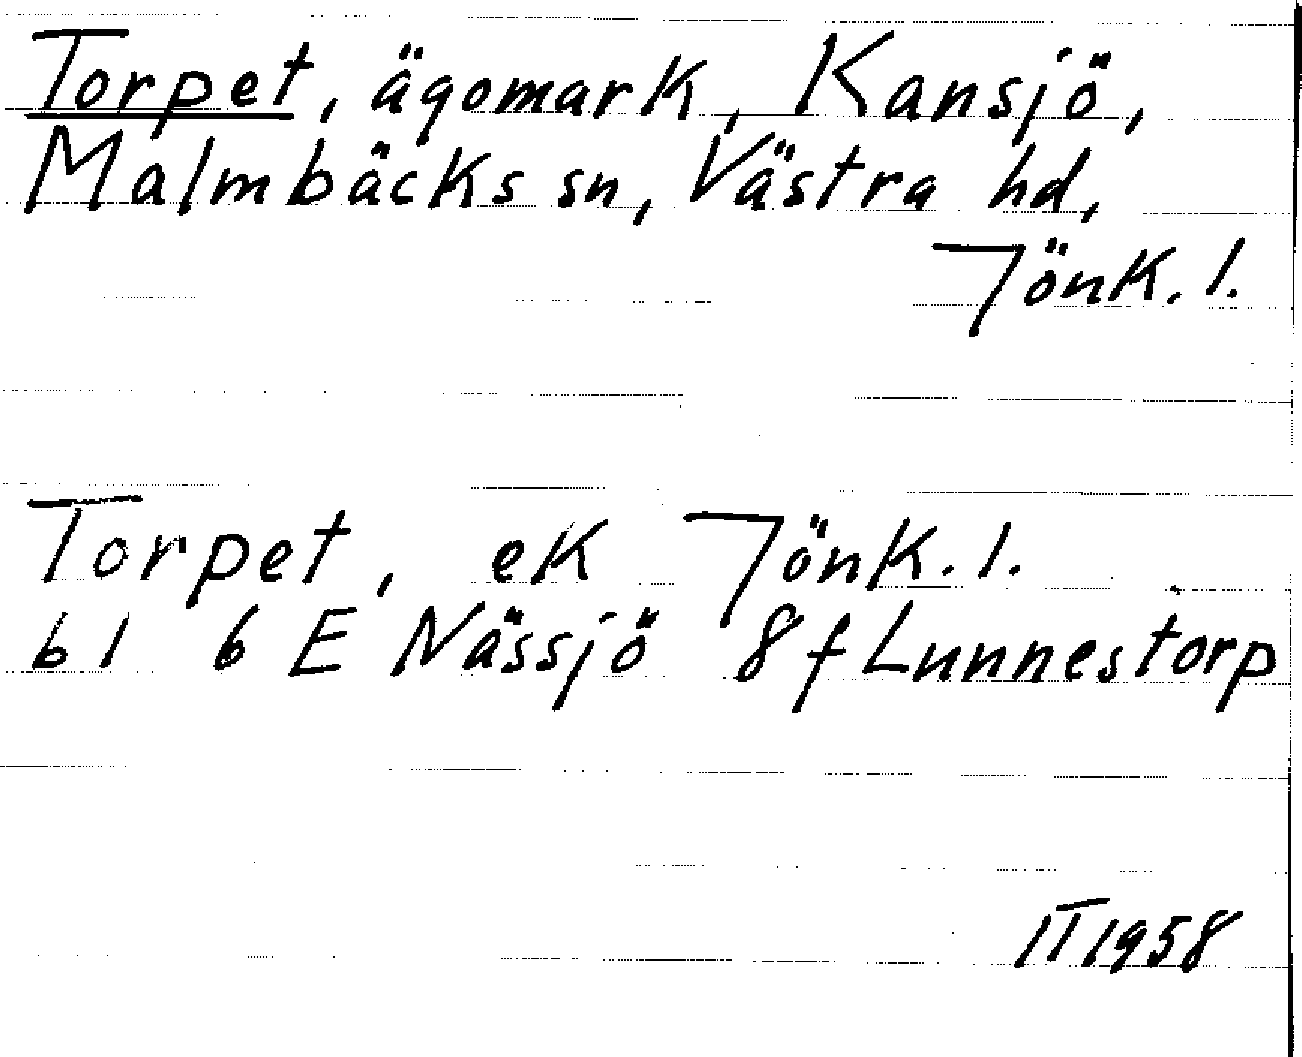 Torpet, ägomark, Kansjö,
Malmbäcks sn, Västra hd,
Jönk. l.
Torpet, ek Jönk. l.
61 6 E Nässjö 8 f Lunnestorp
IT 1958